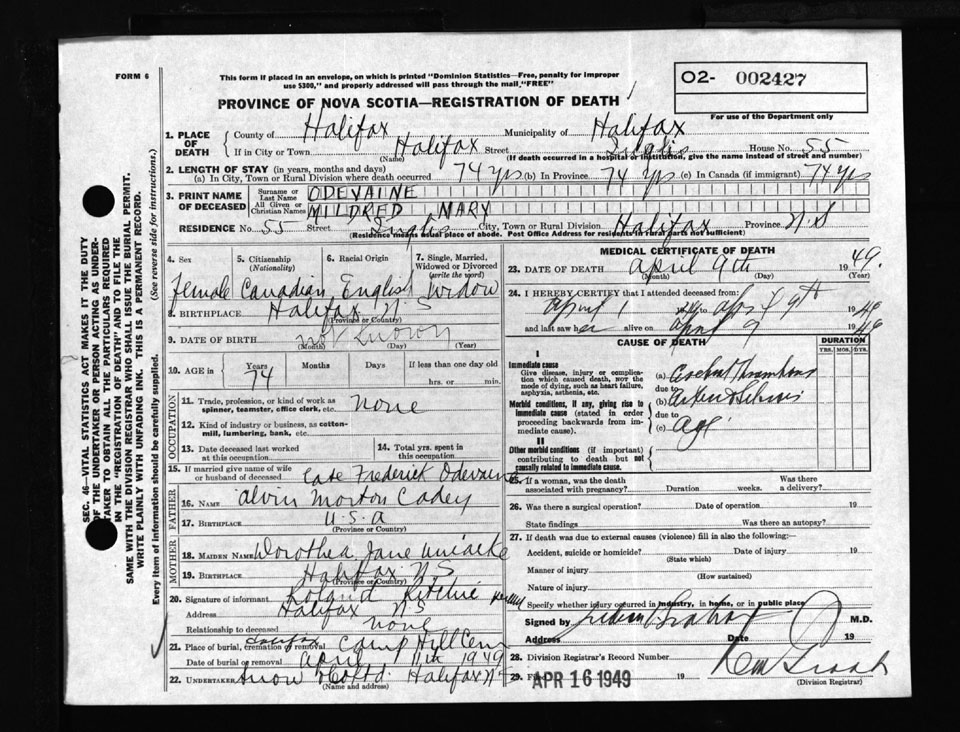 FORM 6
This form if placed in an envelope, on which is printed "Dominion Statistics—Free, penalty for improper
use $300," and properly addressed will pass through the mail "FREE"
O2- 002427
PROVINCE OF NOVA SCOTIA—REGISTRATION OF DEATH
For use of the Department only
1. PLACE OF DEATH { County of Halifax Municipality of Halifax
If in City or Town Halifax Street Inglis House No. 55
(Name) (If death occurred in a hospital or institution, give the name instead of street and number)
2. LENGTH OF STAY (in years, months and days)
(a) In City, Town or Rural Division where death occurred 74 yrs (b) In Province 74 yrs (c) In Canada (if immigrant) 74 yrs
3. PRINT NAME OF DECEASED { Surname or Last Name ODEVAINE
All Given or Christian Names MILDRED MARY
RESIDENCE No. 55 Street Inglis City, Town or Rural Division Halifax Province N.S
(Residence means usual place of abode. Post Office Address for residents in rural parts not sufficient)
4. Sex 5. Citizenship (Nationality) 6. Racial Origin 7. Single, Married, Widowed or Divorced (write the word)
Female Canadian English Widow
8. BIRTHPLACE Halifax N S
(Province or Country)
9. DATE OF BIRTH not known
(Month) (Day) (Year)
10. AGE in { Years Months Days If less than one day old
74 hrs. or min.
OCCUPATION
11. Trade, profession, or kind of work as spinner, teamster, office clerk, etc. None
12. Kind of industry or business, as cotton-mill, lumbering, bank, etc.
13. Date deceased last worked at this occupation 14. Total yrs. spent in this occupation
15. If married give name of wife or husband of deceased Late Frederick Odevaine
FATHER
16. NAME Alvin Morton
17. BIRTHPLACE U.S.A
(Province or Country)
MOTHER
18. MAIDEN NAME Dorothea Jane Uniacke
19. BIRTHPLACE Halifax N S
(Province or Country)
20. Signature of informant Roland Ritchie
Address Halifax N S
Relationship to deceased none
21. Place of burial, cremation or removal Halifax Camp Hill Cem
Date of burial or removal April 11th 1949
22. UNDERTAKER Snow & Co Ltd. Halifax N S
(Name and address)
MEDICAL CERTIFICATE OF DEATH
23. DATE OF DEATH April 9th 1949.
(Month) (Day)
24. I HEREBY CERTIFY that I attended deceased from:
April 1 1949 to April 9th 1949
and last saw her alive on April 9 1949
CAUSE OF DEATH DURATION
YRS. MOS. DYS.
I
Immediate cause
Give disease, injury or complication which caused death, not the mode of dying, such as heart failure, asphyxia, asthenia, etc.
(a) Cerebral Thrombosis
due to
Morbid conditions, if any, giving rise to immediate cause (stated in order proceeding backwards from immediate cause).
(b)
due to
(c) Age
II
Other morbid conditions (if important) contributing to death but not causally related to immediate cause.
25. If a woman, was the death associated with pregnancy? Duration weeks. Was there a delivery?
26. Was there a surgical operation? Date of operation 19
State findings Was there an autopsy?
27. If death was due to external causes (violence) fill in also the following:
Accident, suicide or homicide? Date of injury 19
(State which)
Manner of injury
(How sustained)
Nature of injury
Specify whether injury occurred in industry, in home, or in public place
Signed by M.D.
Address Date 19
28. Division Registrar's Record Number
29. Filed APR 16 1949 19
(Division Registrar)
SEC. 46—VITAL STATISTICS ACT MAKES IT THE DUTY
OF THE UNDERTAKER OR PERSON ACTING AS UNDER-
TAKER TO OBTAIN ALL THE PARTICULARS REQUIRED
IN THE "REGISTRATION OF DEATH" AND TO FILE THE
SAME WITH THE DIVISION REGISTRAR WHO SHALL ISSUE THE BURIAL PERMIT.
WRITE PLAINLY WITH UNFADING INK. THIS IS A PERMANENT RECORD.
Every item of information should be carefully supplied. (See reverse side for instructions.)